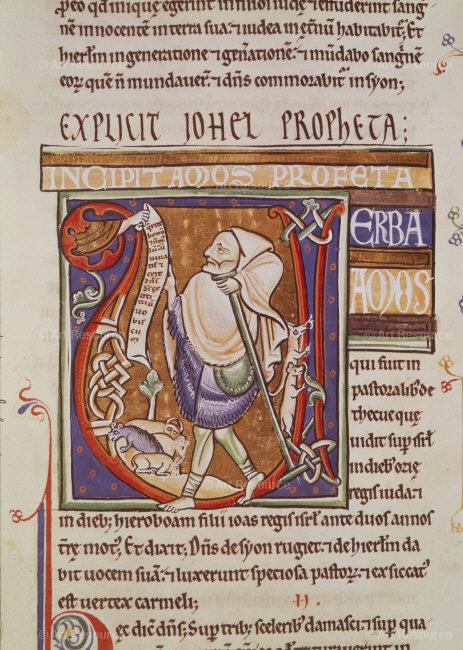 pro eo qd inique egerint in filios iuda. ⁊ effuderint sang
nē innocentē in terra sua; ⁊ iudea in etnū habitabit̄. Et
hierłm in generatione ⁊ gn̄atione. ⁊ mūdabo sangͥnē
eoꝝ quē n̄ mundauet᷑; ⁊ dn̄s commorabit᷑ in syon;
EXPLICIT IOHEL PROPHETA;
INCIPIT AMOS PROFETA
ERBA
AMOS
qui fuit in
pastoralib; de
thecue que
uidit sup isrł
in dieb; ozie
regis iuda. ⁊
in dieb; hieroboam filii ioas regis isrł ante duos annos
t̄rę mot᷒; Et dixit; Dn̄s de syon rugiet. ⁊ de hierłm da
bit uocem suā. ⁊ luxerunt speciosa pastoꝝ. ⁊ exsiccat᷒
est uertex carmeli; II.
ec dic̄ dn̄s; Sup trib; sceleribͥ damasci. ⁊ sup qua